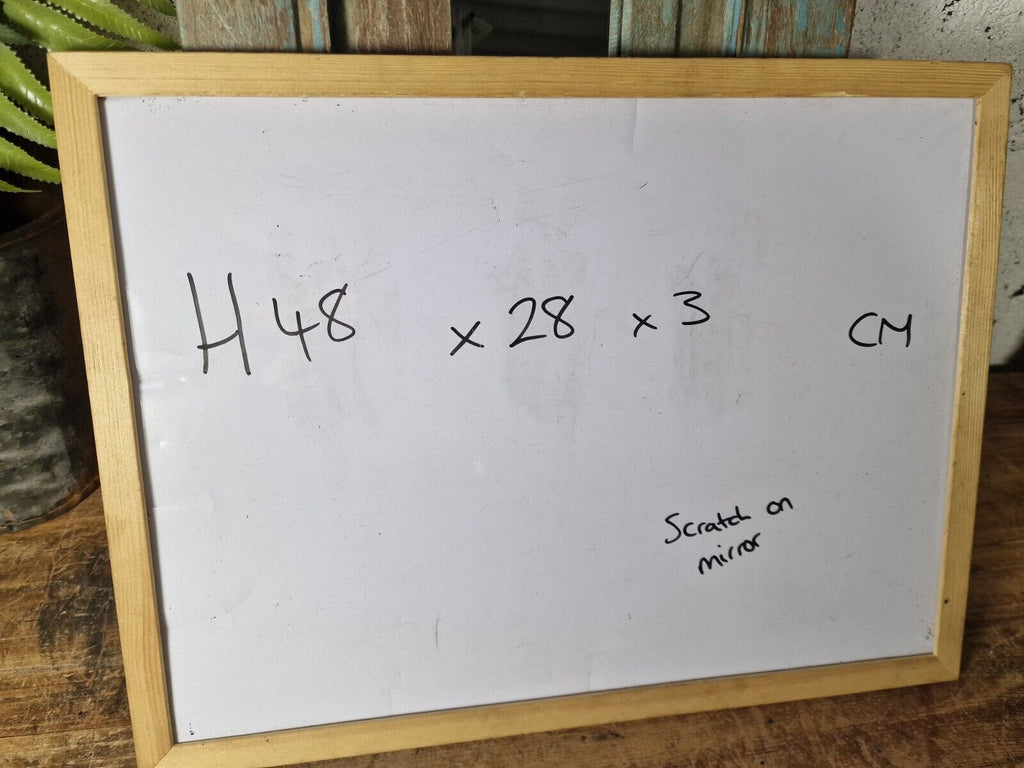 H 48 x 28 x 3 CM
Scratch on
mirror